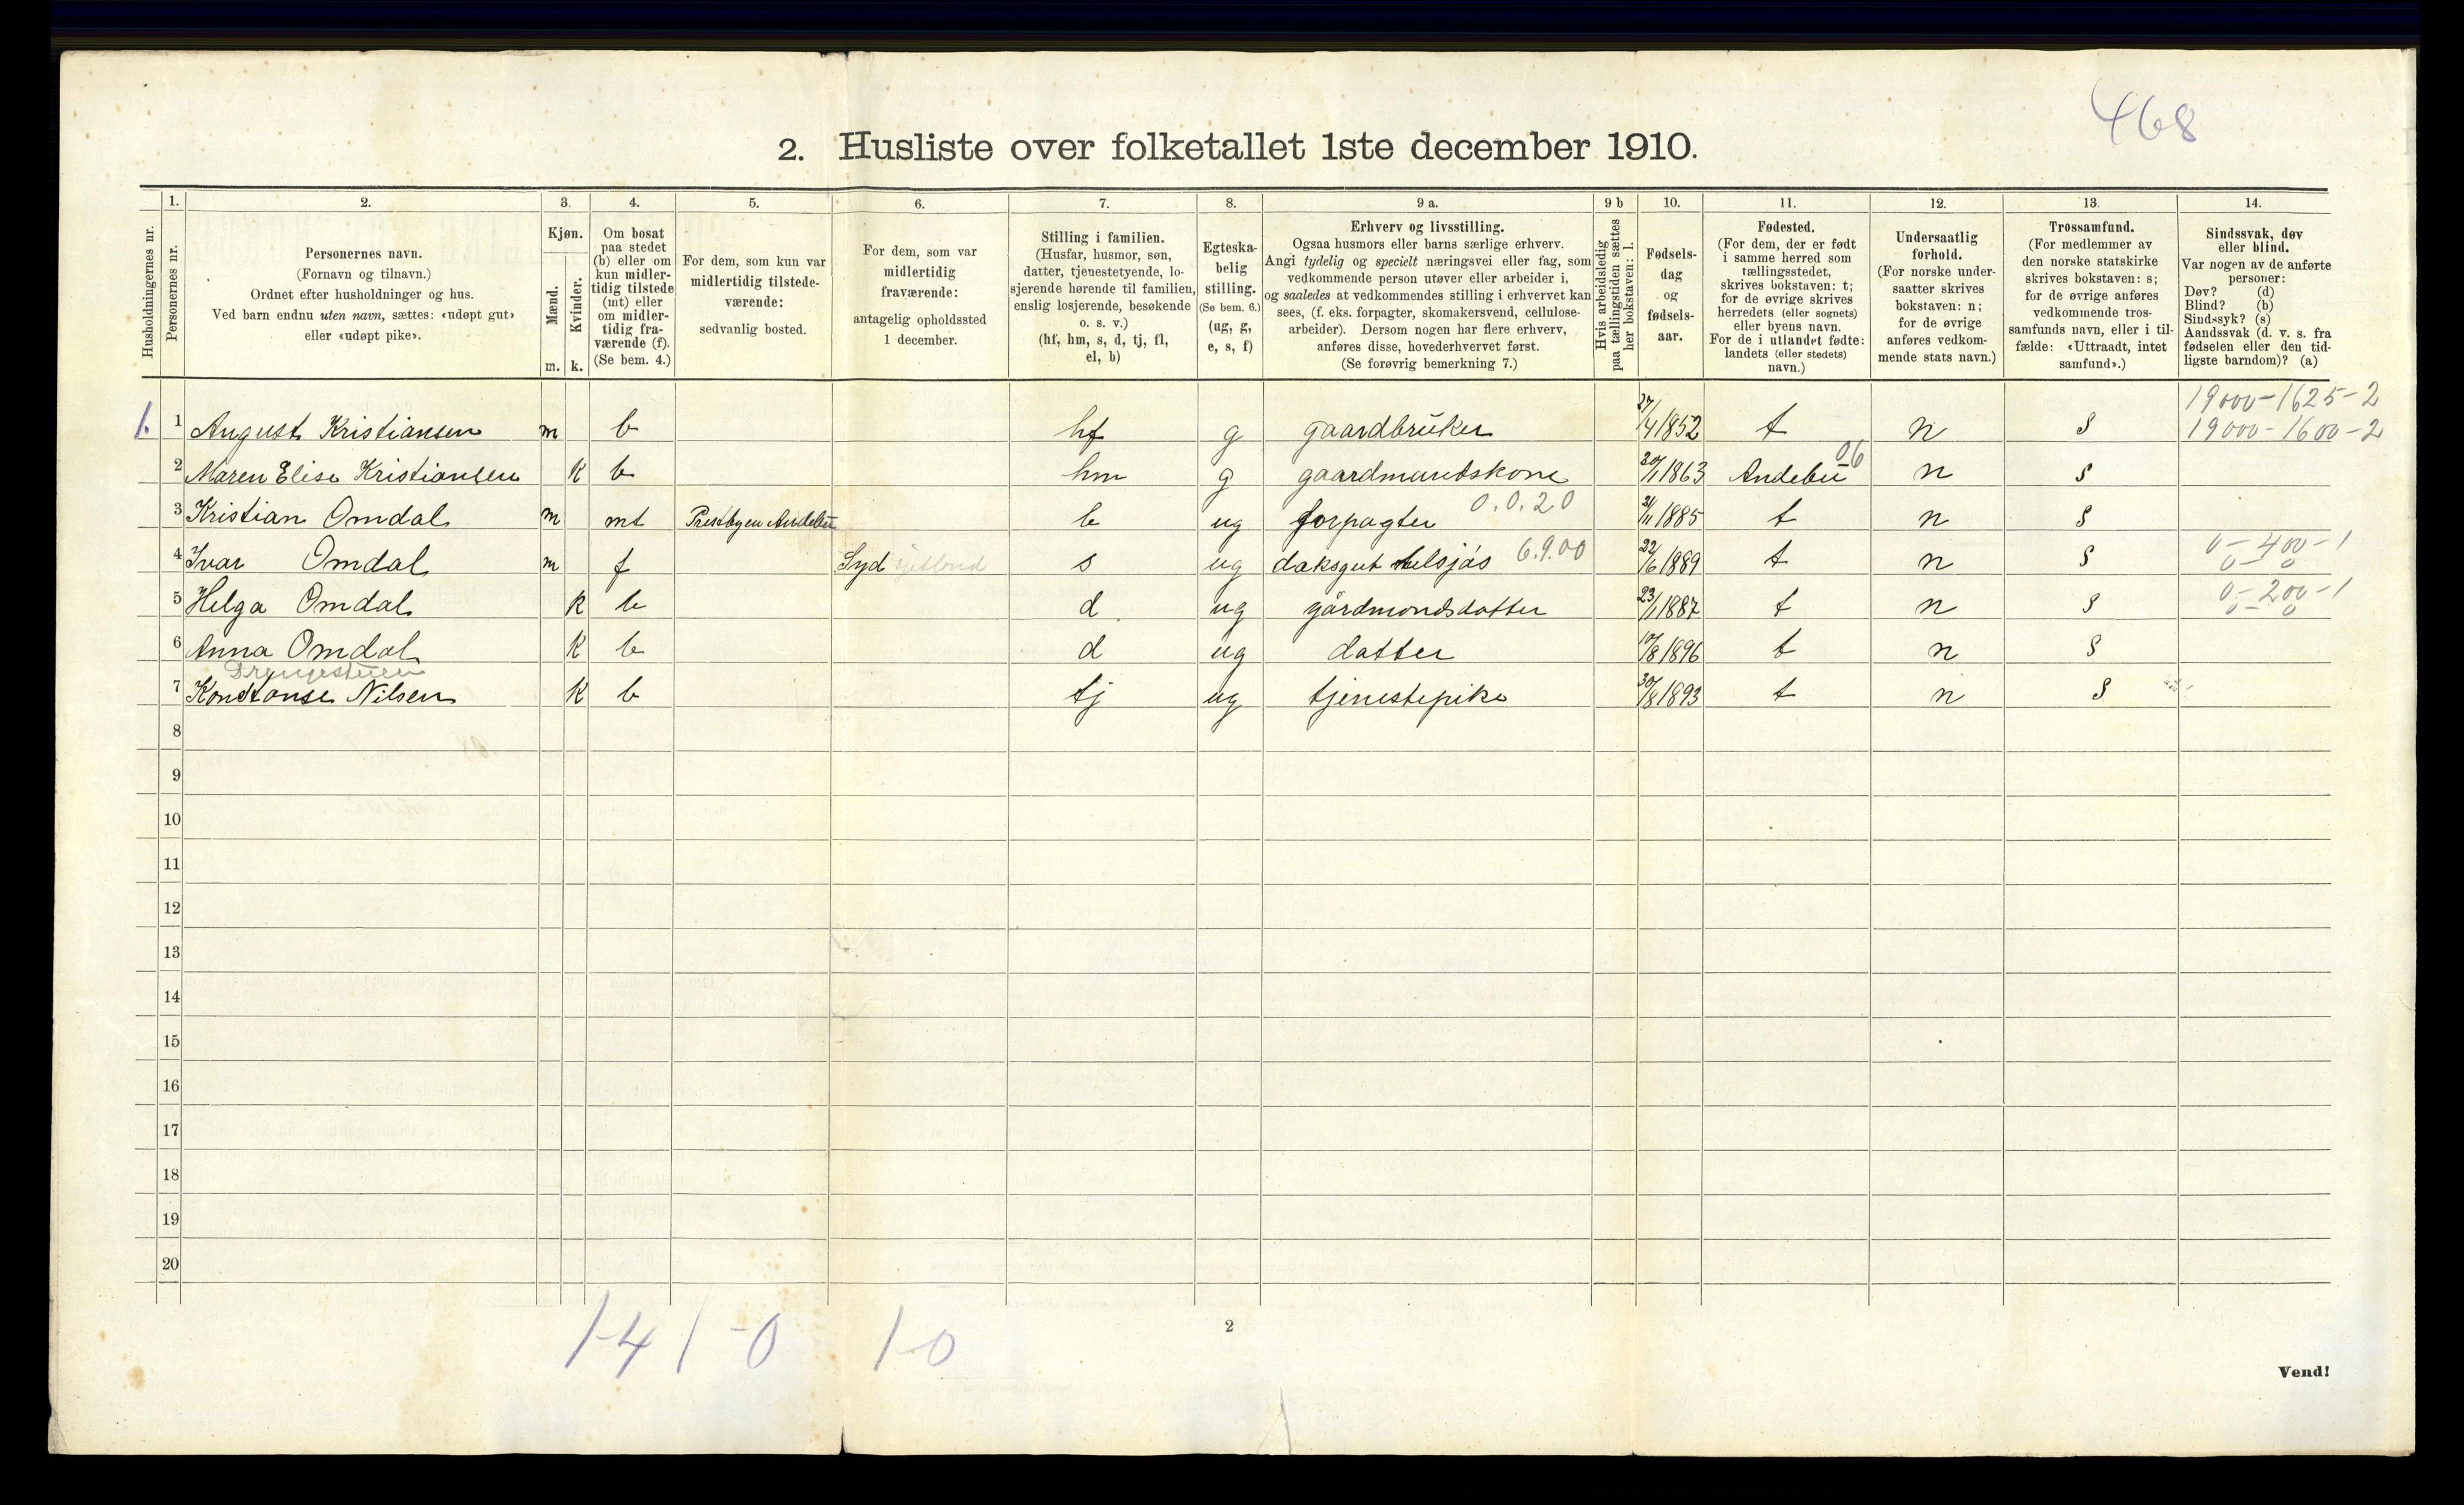 468
2. Husliste over folketallet 1ste december 1910.
Husholdningernes nr.
1. Personernes nr.
2. Personernes navn.
(Fornavn og tilnavn.)
Ordnet efter husholdninger og hus.
Ved barn endnu uten navn, sættes: «udøpt gut»
eller «udøpt pike».
3. Kjøn.
Mænd. m.
Kvinder. k.
4. Om bosat
paa stedet
(b) eller om
kun midler-
tidig tilstede
(mt) eller
om midler-
tidig fra-
værende (f).
(Se bem. 4.)
5. For dem, som kun var
midlertidig tilstede-
værende:
sedvanlig bosted.
6. For dem, som var
midlertidig
fraværende:
antagelig opholdssted
1 december.
7. Stilling i familien.
(Husfar, husmor, søn,
datter, tjenestetyende, lo-
sjerende hørende til familien,
enslig losjerende, besøkende
o. s. v.)
(hf, hm, s, d, tj, fl,
el, b)
8. Egteska-
belig
stilling.
(Se bem. 6.)
(ug, g,
e, s, f)
9 a. Erhverv og livsstilling.
Ogsaa husmors eller barns særlige erhverv.
Angi tydelig og specielt næringsvei eller fag, som
vedkommende person utøver eller arbeider i,
og saaledes at vedkommendes stilling i erhvervet kan
sees, (f. eks. forpagter, skomakersvend, cellulose-
arbeider). Dersom nogen har flere erhverv,
anføres disse, hovederhvervet først.
(Se forøvrig bemerkning 7.)
9 b Hvis arbeidsledig
paa tællingstiden sættes
her bokstaven: l.
10. Fødsels-
dag
og
fødsels-
aar.
11. Fødested.
(For dem, der er født
i samme herred som
tællingsstedet,
skrives bokstaven: t;
for de øvrige skrives
herredets (eller sognets)
eller byens navn.
For de i utlandet fødte:
landets (eller stedets)
navn.)
12. Undersaatlig
forhold.
(For norske under-
saatter skrives
bokstaven: n;
for de øvrige
anføres vedkom-
mende stats navn.)
13. Trossamfund.
(For medlemmer av
den norske statskirke
skrives bokstaven: s;
for de øvrige anføres
vedkommende tros-
samfunds navn, eller i til-
fælde: «Uttraadt, intet
samfund».)
14. Sindssvak, døv
eller blind.
Var nogen av de anførte
personer:
Døv? (d)
Blind? (b)
Sindssyk? (s)
Aandssvak (d. v. s. fra
fødselen eller den tid-
ligste barndom)? (a)
19000-1625-2
1. 1 August Kristiansen m b hf g gaardbruker 27/4 1852 t n s 19000-1600-2
06
2 Maren Elise Kristiansen k b hm g gaardmandskone 20/1 1863 Andebu n s
3 Kristian Omdal m mt Prestbyen Andebu b ug forpagter 0.0.20 21/11 1885 t n s
4 Ivar Omdal m f Syd s ug daksgut 6.9.00 22/6 1889 t n s 0-400-1
0-0
5 Helga Omdal k b d ug gårdmandsdatter 23/1 1887 t n s 0-200-1
0-0
6 Anna Omdal k b d ug datter 10/8 1896 t n s
7 Konstanse Nilsen k b tj ug tjenestepike 30/8 1893 t n s
8
9
10
11
12
13
14
15
16
17
18
19
20
1-4 1-0 1-0
2
Vend!